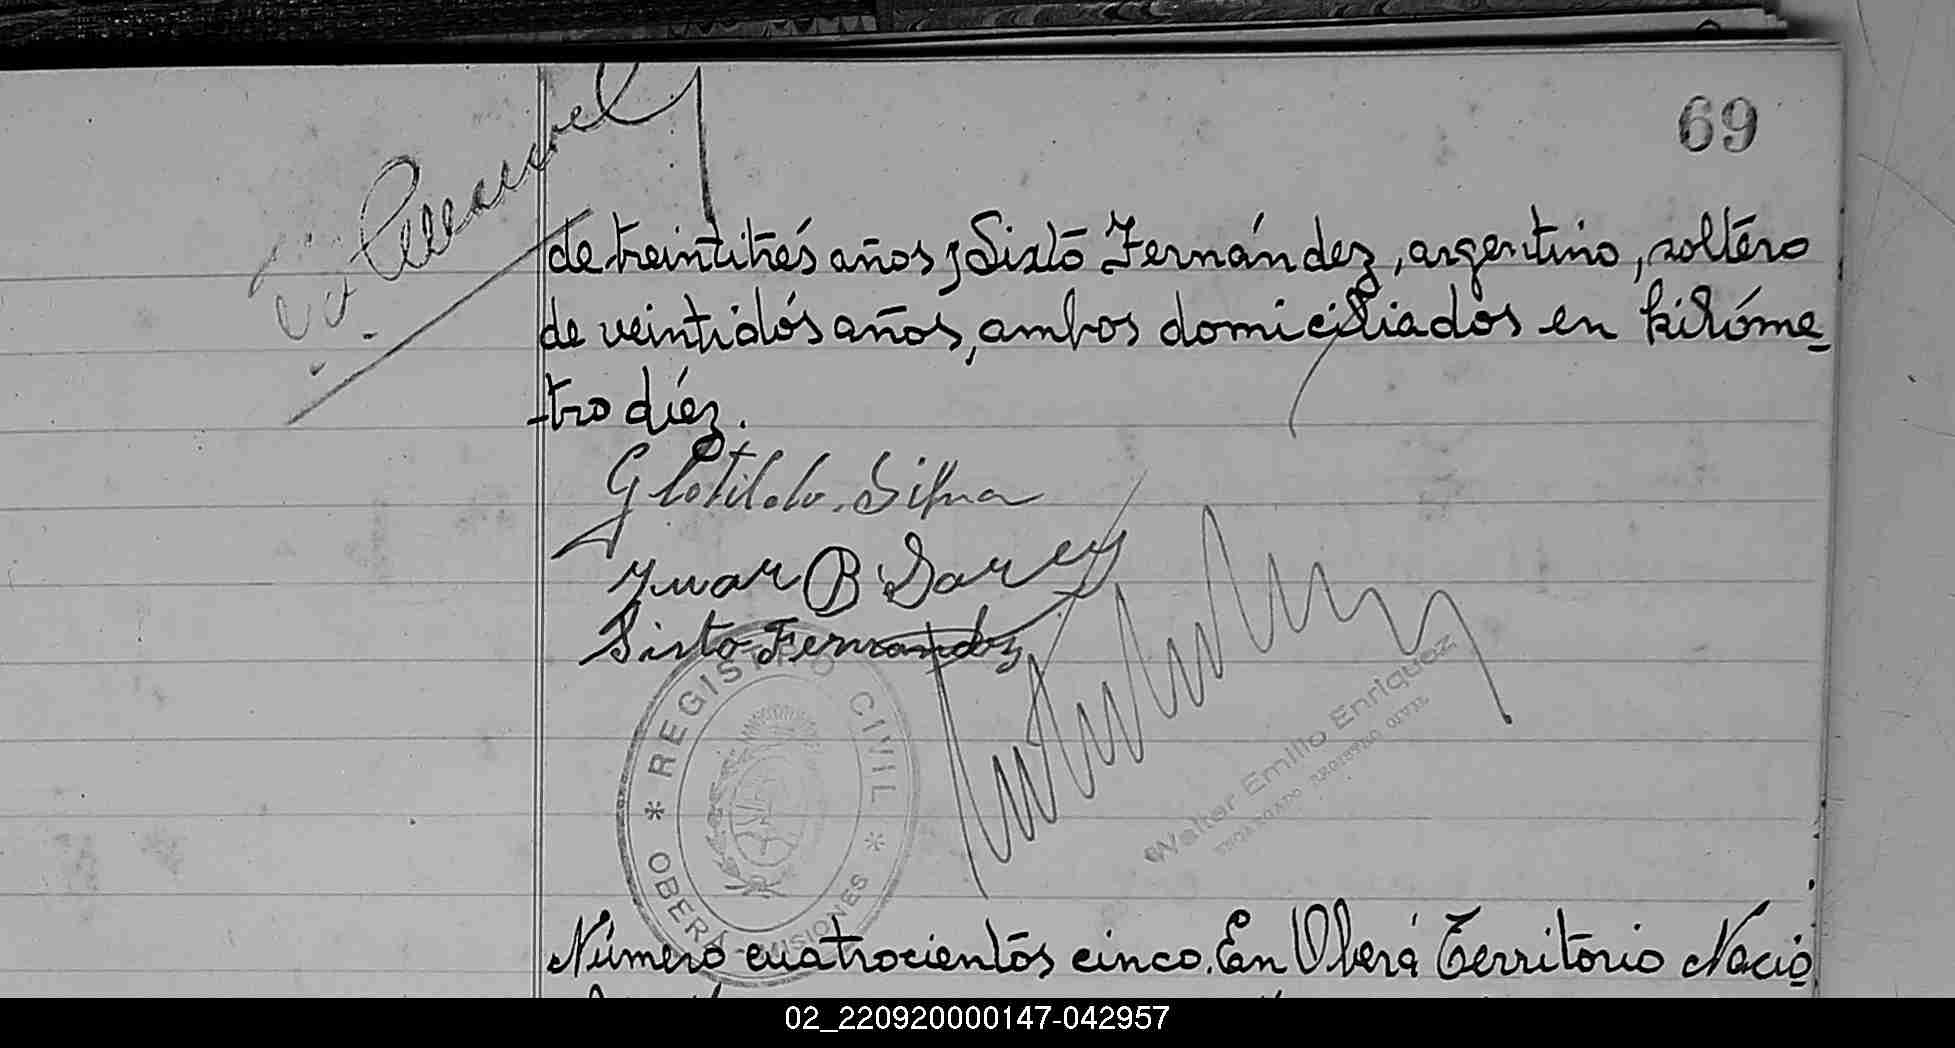 69
de treintitrés años y Sixto Fernández, argentino, soltero
de veintidós años, ambos domiciliados en kilóme_
_tro diéz.
Glotilda. Silva
Juan B
Sixto Fernandez
REGISTRO CIVIL
OBERÁ - MISIONES
Walter Emilio Enriquez
ENCARGADO REGISTRO CIVIL
Número cuatrocientos cinco. En Oberá Territorio Nacio
02_220920000147-042957